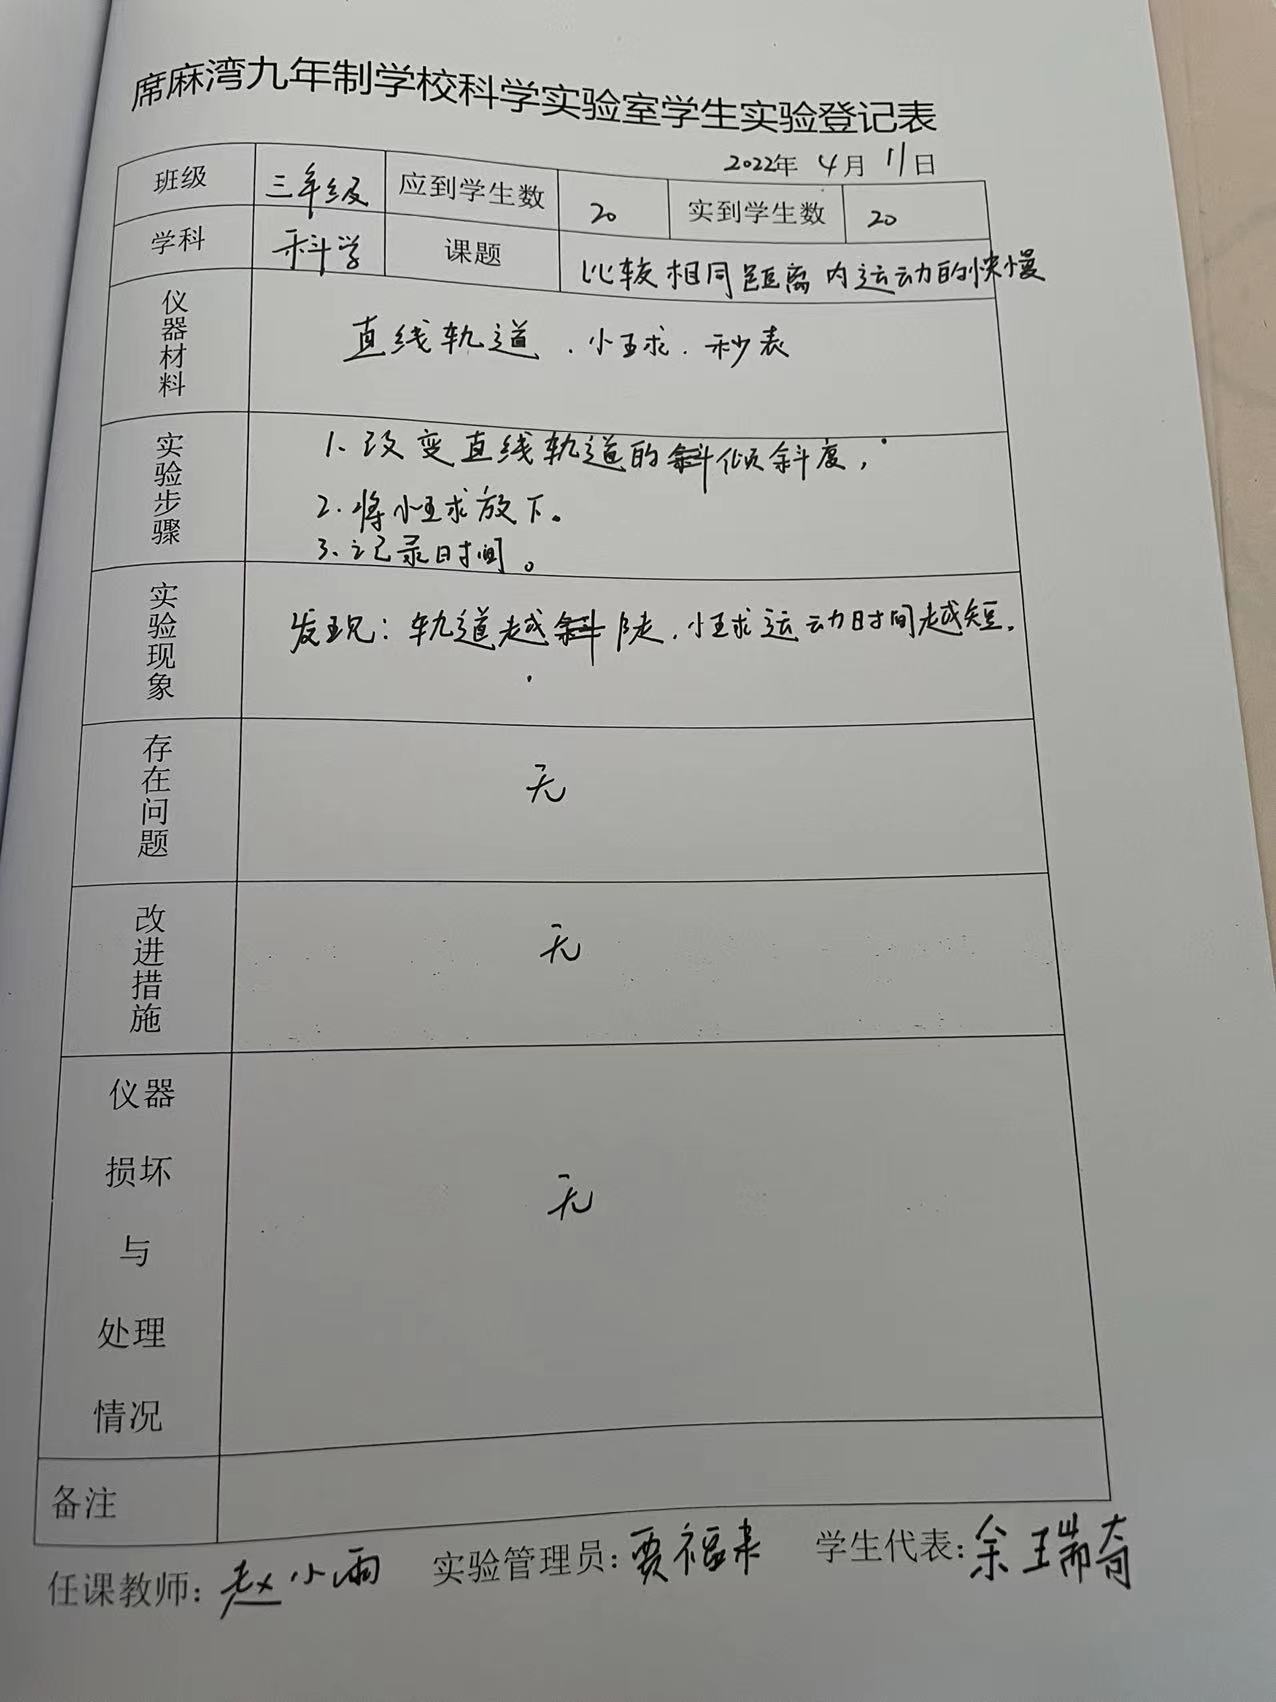 席麻湾九年制学校科学实验室学生实验登记表
2022年 4月 11日
班级 三年级 应到学生数 20 实到学生数 20
学科 科学 课题 比较相同距离内运动的快慢
仪器材料 直线轨道、小球、秒表
实验步骤 1、改变直线轨道的斜倾斜度，
2、将小球放下。
3、记录时间。
实验现象 发现：轨道越斜陡，小球运动时间越短。
存在问题 无
改进措施 无
仪器
损坏
与 无
处理
情况
备注
任课教师：赵小雨 实验管理员：贾福来 学生代表：余瑞奇